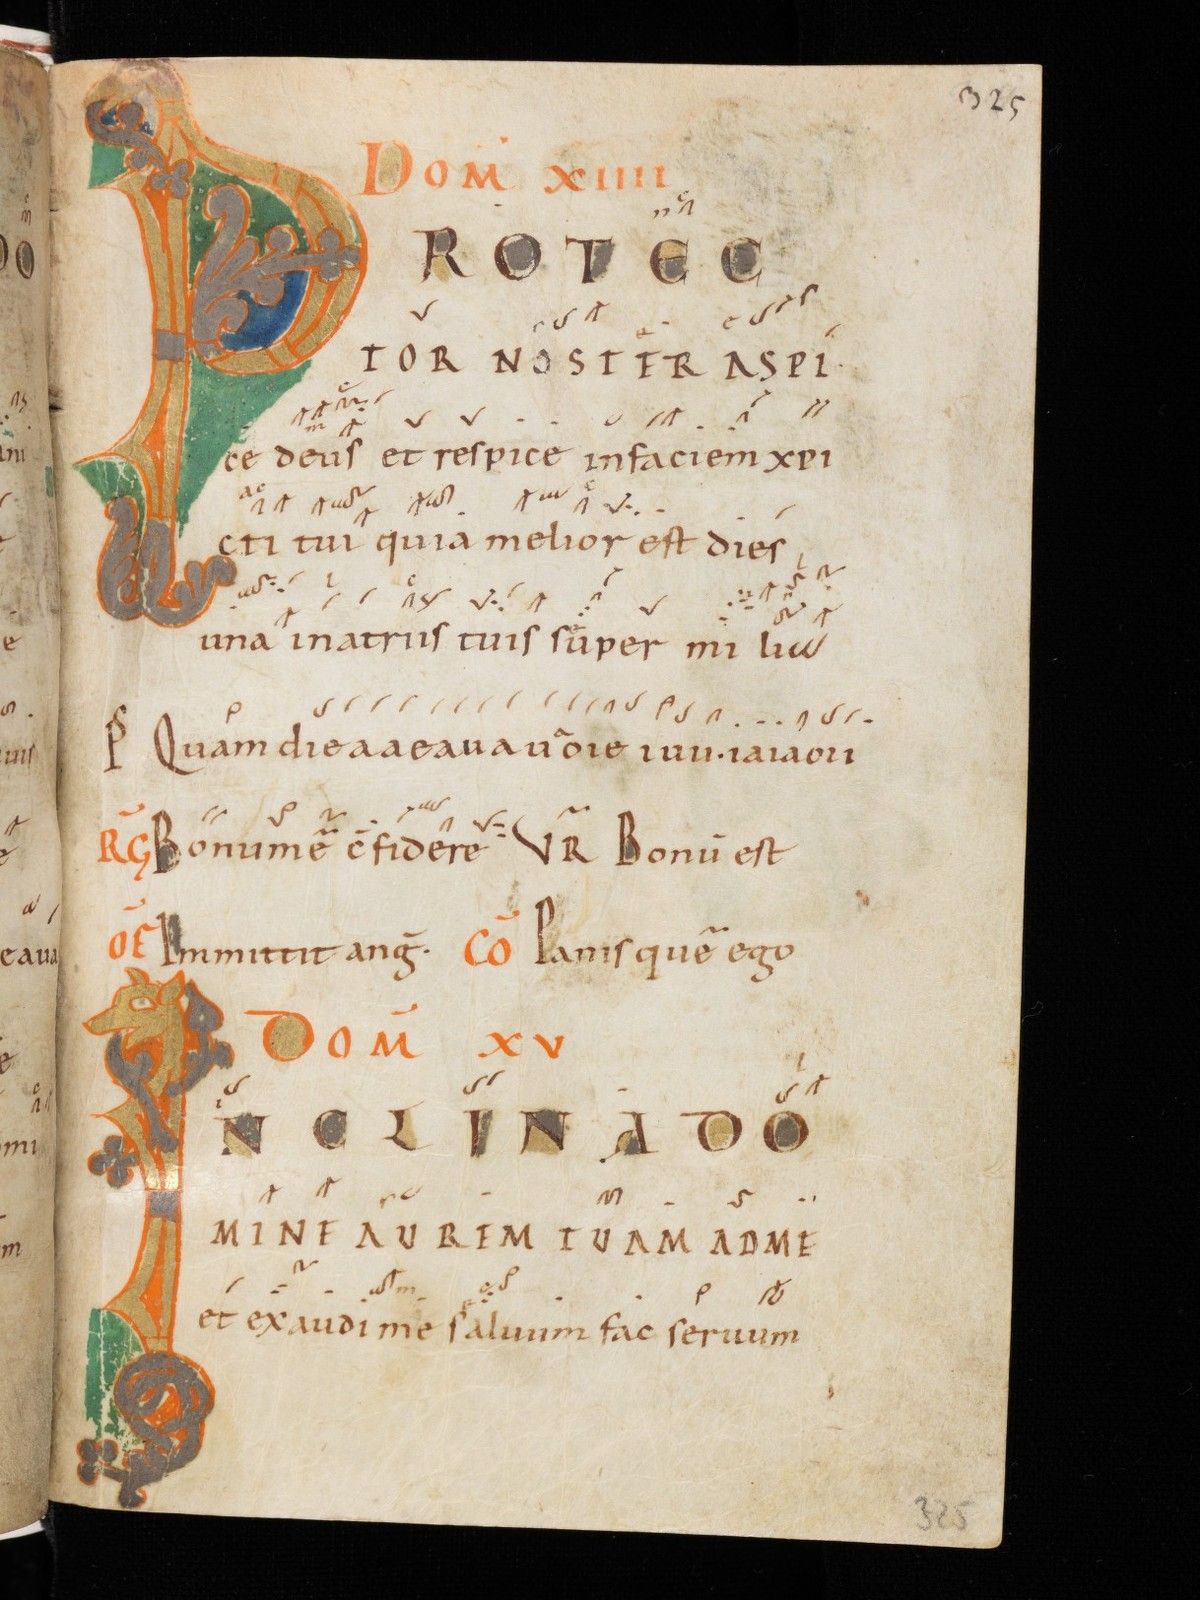 325
DOM̄ XIIII
PROTEC
TOR NOSTER ASPI
ce deus et respice infaciem xpi
cti tui quia melior est dies
una inatriis tuis super mi lia
Ps Quam dieaaeauauoie iuu·iaiaoii
RG Bonum ē c̄fidere VR Bonū est
OF Immittit anḡ· CŌ Panis quē ego
DOM̄ XV
INCLINA DO
MINE AUREM TUAM ADME
et exaudi me saluum fac seruum
325